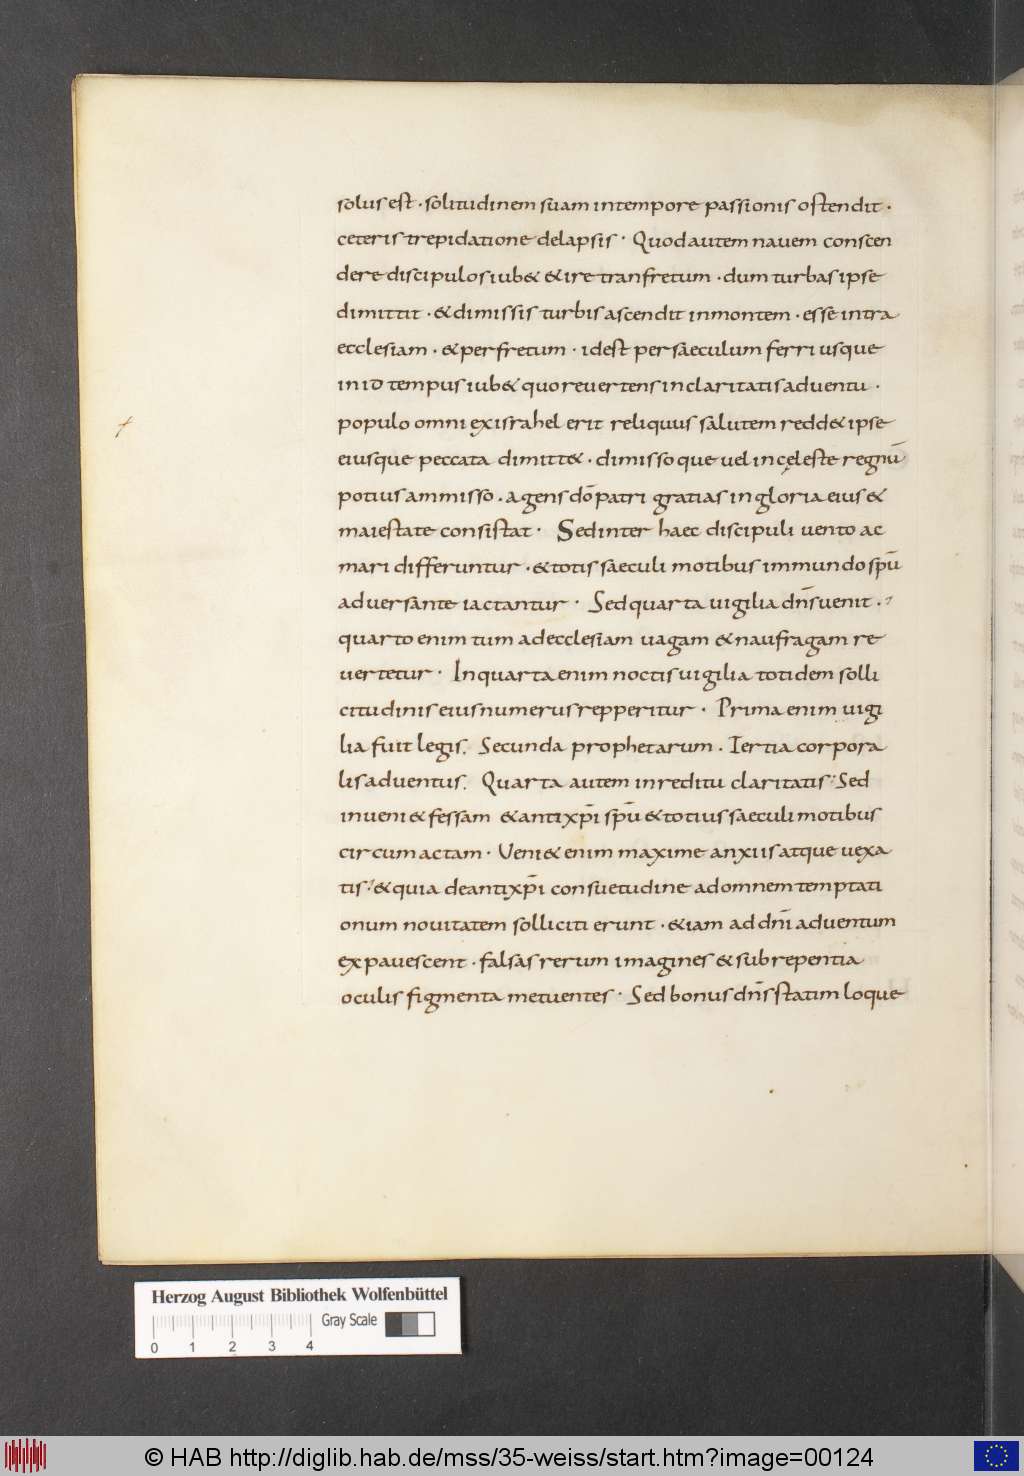 solus est · solitudinem suam intempore passionis ostendit ·
ceteris trepidatione delapsis · Quodautem nauem conscen
dere discipulos iub& & ire tranfretum · dum turbas ipse
dimittit · & dimissis turbis ascendit inmontem · esse intra
ecclesiam · & perfretum · idest persaeculum ferri usque
inid tempus iub& quo reuertens inclaritatis aduentu ·
populo omni exisrahel erit reliquus salutem redd& ipse
eiusque peccata dimitt& · dimissoque uel incęleste regnū
potius ammisso · agens dō patri gratias ingloria eius &
maiestate consistat · Sedinter haec discipuli uento ac
mari differuntur · & totis saeculi motibus immundo spū
aduersante iactantur · Sed quarta uigilia dn̄s uenit ·
quarto enim tum adecclesiam uagam & naufragam re
uertetur · Inquarta enim noctis uigilia totidem solli
citudinis eius numerus repperitur · Prima enim uigi
lia fuit legis. Secunda prophetarum · Tertia corpora
lis aduentus. Quarta autem inreditu claritatis · Sed
inueni& fessam & antixp̄i spū & totius saeculi motibus
circumactam · Ueni& enim maxime anxiis atque uexa
tis · & quia deantixp̄i consuetudine adomnem temptati
onum nouitatem solliciti erunt · &iam ad dn̄i aduentum
expauescent · falsas rerum imagines & subrepentia
oculis figmenta metuentes · Sed bonus dn̄s statim loque
Herzog August Bibliothek Wolfenbüttel
Gray Scale
0 1 2 3 4
© HAB http://diglib.hab.de/mss/35-weiss/start.htm?image=00124